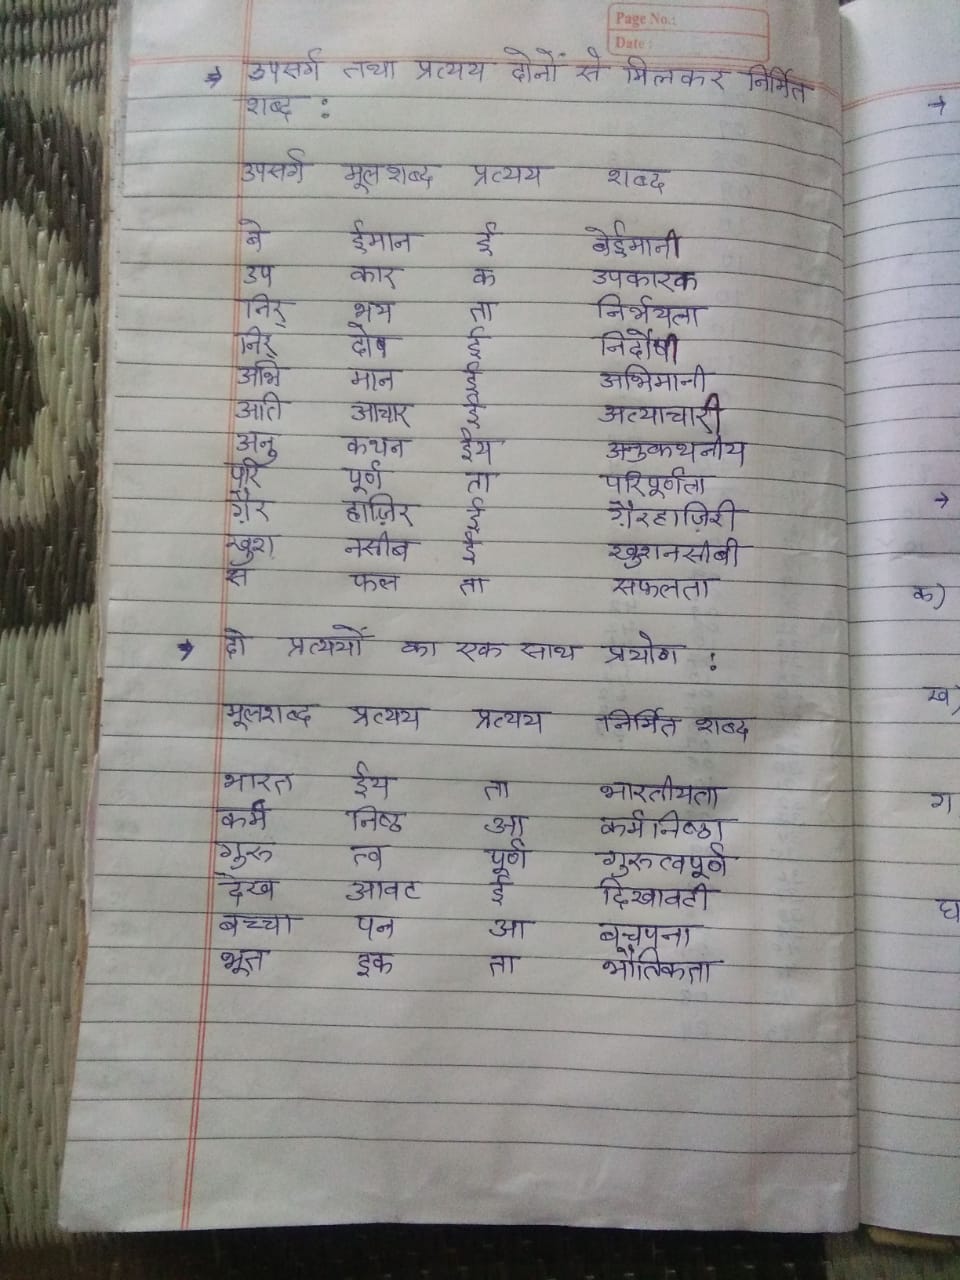 Page No.:
Date :
→ उपसर्ग तथा प्रत्यय दोनों से मिलकर निर्मित
शब्द :
उपसर्ग मूलशब्द प्रत्यय शब्द
बे ईमान ई बेईमानी
उप कार क उपकारक
निर् भय ता निर्भयता
निर् दोष ई निर्दोषी
अभि मान ई अभिमानी
अति आचार ई अत्याचारी
अनु कथन ईय अनुकथनीय
परि पूर्ण ता परिपूर्णता
ग़ैर हाज़िर ई ग़ैरहाज़िरी
खुश नसीब ई खुशनसीबी
स फल ता सफलता
→ दो प्रत्ययों का एक साथ प्रयोग :
मूलशब्द प्रत्यय प्रत्यय निर्मित शब्द
भारत ईय ता भारतीयता
कर्म निष्ठ आ कर्मनिष्ठा
गुरु त्व पूर्ण गुरुत्वपूर्ण
देख आवट ई दिखावटी
बच्चा पन आ बचपना
भूत इक ता भौतिकता
→
→
क)
ख)
ग
घ